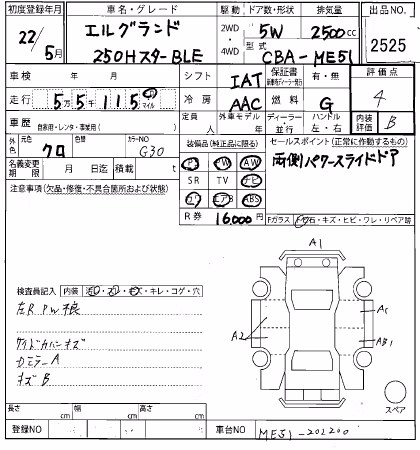 初度登録年月 車名・グレード 駆動 ドア数・形状 排気量 出品NO.
22/5月 エルグランド 2WD 4WD 5W 2500cc 2525
250HスターBLE 型式 CBA-ME51
車検 年 月 シフト IAT 保証書 有・無 評価点
走行 5万5千115 マイル 冷房 AAC 燃料 G 4
車歴 自家用・レンタ・事業用( ) 定員 人 外車モデル 年 ディーラー・並行 ハンドル 左・右 内装評価 B
外色 元色 クロ 色替 カラーNO G30 装備品(純正品に限る) セールスポイント(正常に作動するもの)
名義変更期限 月 日迄 積載 t PS PW AW 両側パワースライドドア
注意事項(欠品・修復・不具合箇所および状態) SR TV ナビ
カワ エアB ABS
R券 16,000円 Fガラス 石・キズ・ヒビ・ワレ・リペア跡
A1
検査員記入 内装 汚レ・スレ・キズ・キレ・コゲ・穴
左R PW不良 A2 A1
サイドカバーキズ AB1
DミラーA
キズB スペア
長さ cm 幅 cm 高さ cm
登録NO 車台NO ME51-202200